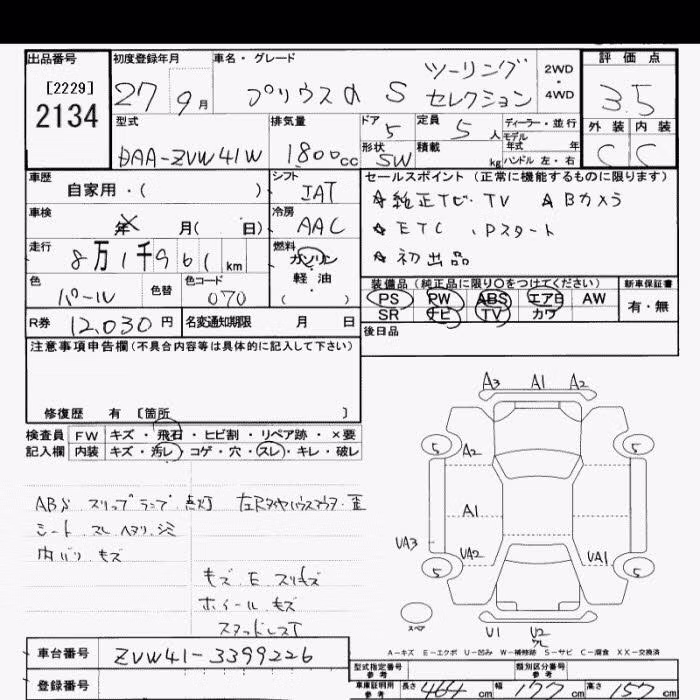 出品番号 初度登録年月 車名・グレード 評価点
[2229] 2134
27 9月 プリウスα S ツーリングセレクション 2WD・4WD 3.5
型式 排気量 ドア 5 定員 5人 ディーラー・並行 外装 内装
DAA-ZVW41W 1800cc 形状 SW 積載 kg モデル年式 年 ハンドル 左・右 C C
車歴 自家用・( ) シフト IAT セールスポイント(正常に機能するものに限ります)
☆純正ナビ・TV ☆Bカメラ
車検 ✕年 月( 日) 冷房 AAC ☆ETC ・Pスタート
走行 8万1千961km 燃料 ガソリン・軽油・( ) ☆初出品
色 パール 色替 色コード 070
装備品(純正品に限り○をつけてください) 新車保証書
PS PW ABS エアB AW 有・無
SR ナビ TV カワ
R券 12,030円 名変通知期限 月 日 後日品
注意事項申告欄(不具合内容等は具体的に記入して下さい)
修復歴 有 [箇所 ]
検査員 FW キズ・飛石・ヒビ割・リペア跡・×要
記入欄 内装 キズ・汚レ・コゲ・穴・スレ・キレ・破レ
A3 A1 A2
5 5
A2
A1
UA3 UA2 UA1
5 5
スペア U1 U2
ABS スリップランプ 点灯 左Rタイヤハウスアウタ 歪
シート スレ ヘタリ シミ
内バリ キズ
キズ E スリキズ
ホイール キズ
スタッドレスT
A-キズ E-エクボ U-凹み W-補修跡 S-サビ C-腐食 XX-交換済
車台番号 ZVW41-3399226
型式指定番号 参考 類別区分番号 参考
登録番号 車庫証明用 参考 長さ 464cm 幅 177cm 高さ 157cm